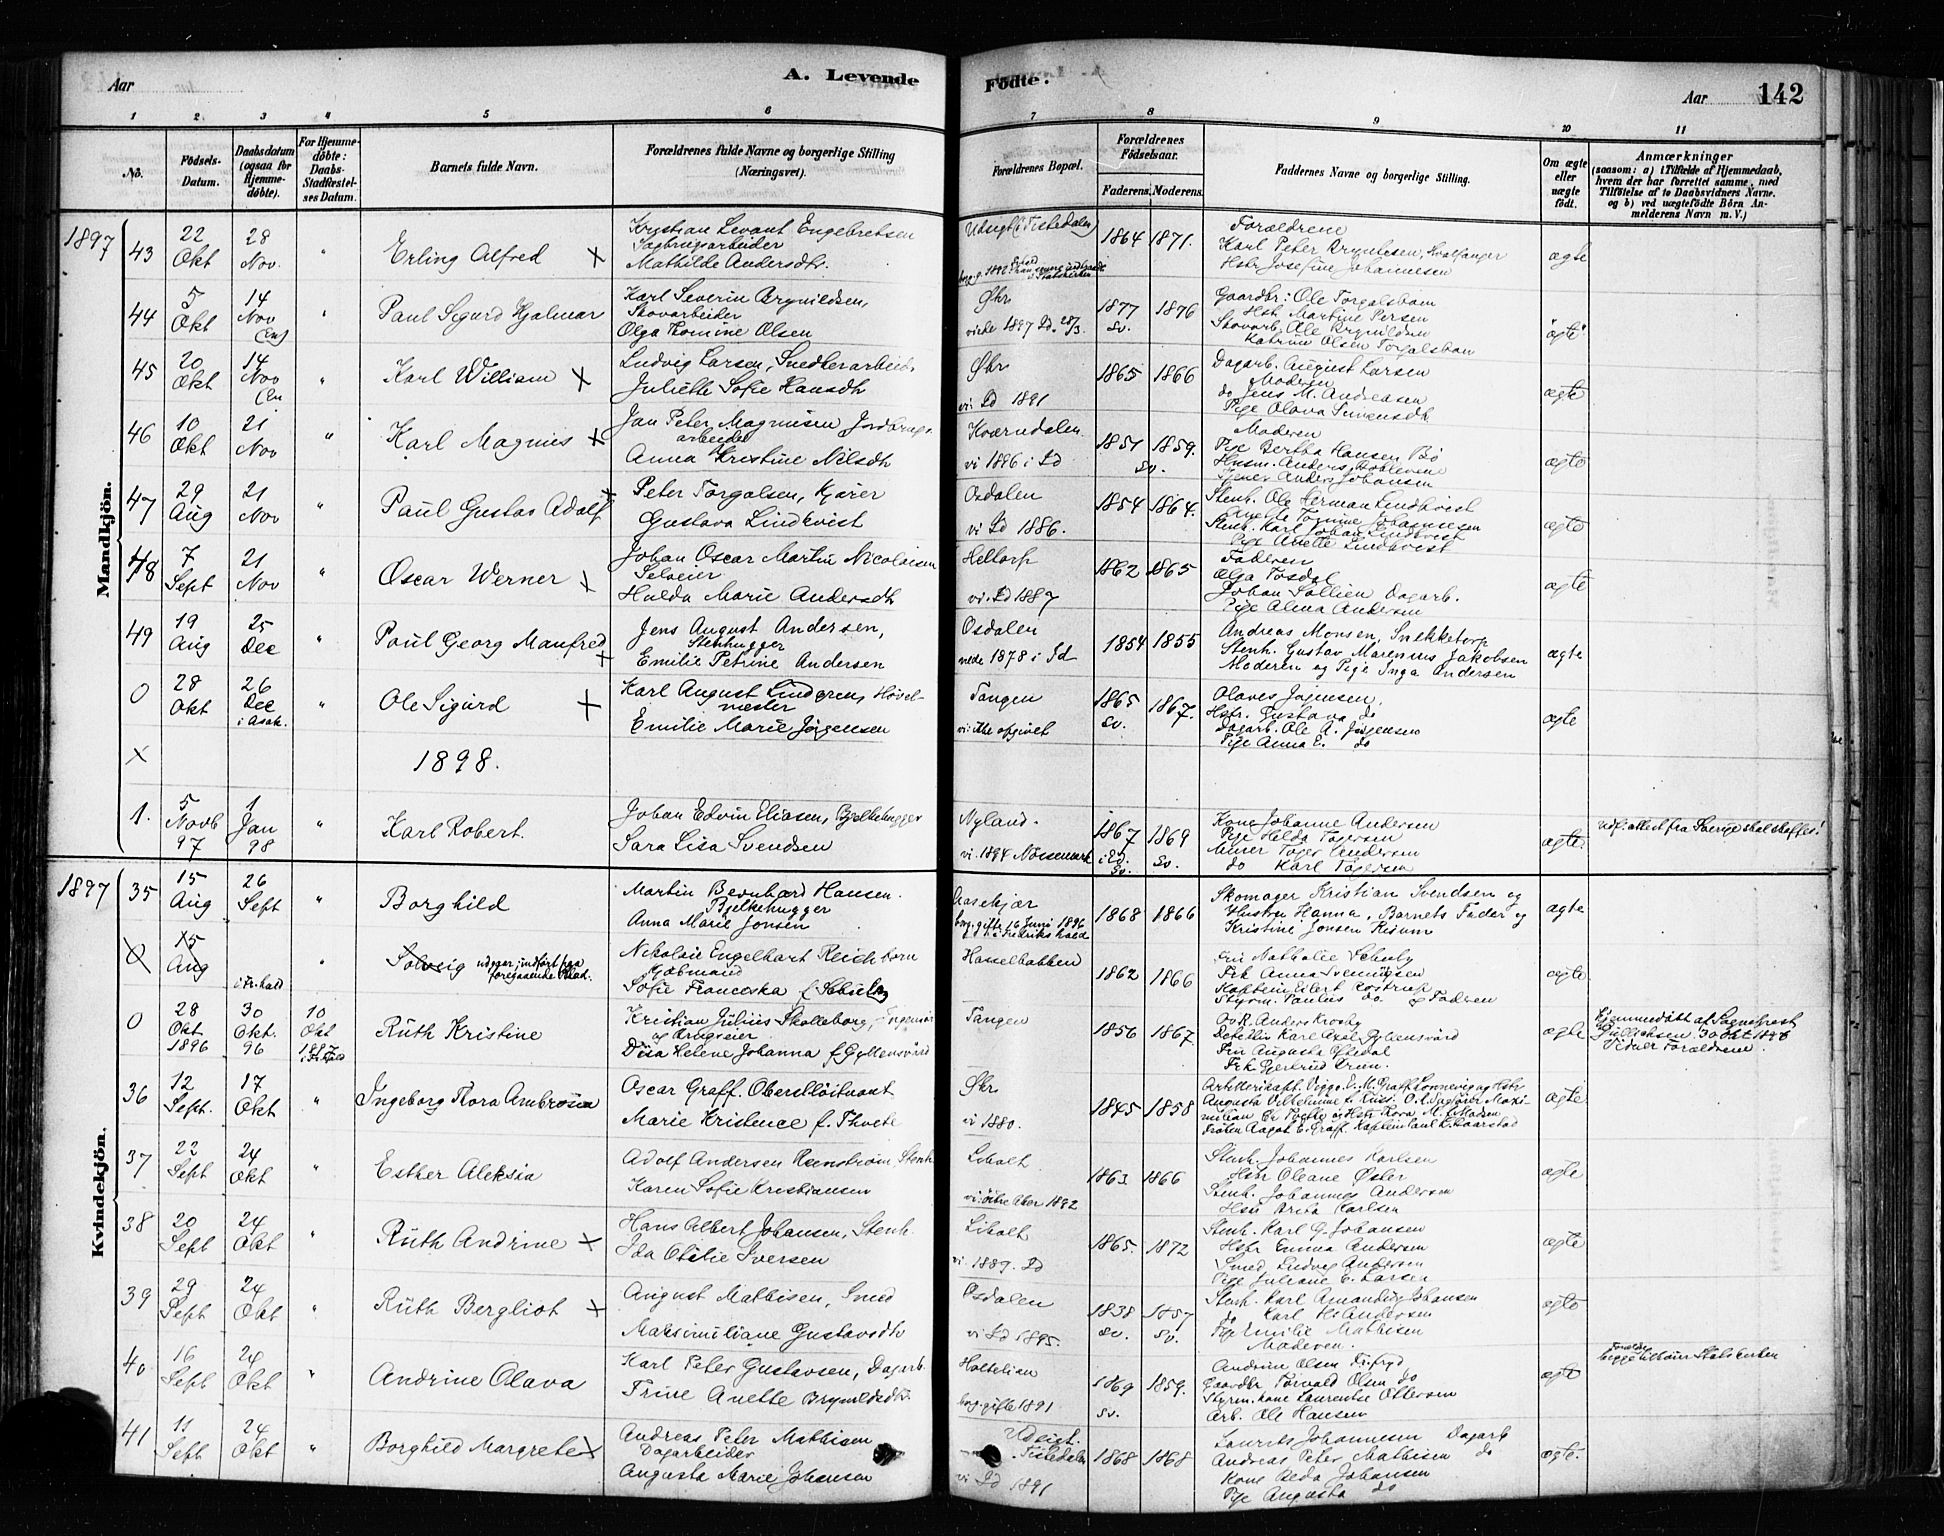 Aar
A. Levende
Födte.
Aar
142
1 2 3 4 5 6 7 8 9 10 11
No.
Födsels-Datum.
Daabsdatum (ogsaa for Hjemmedöbte).
For Hjemmedöbte: Daabs-Stadfestelses Datum.
Barnets fulde Navn.
Forældrenes fulde Navne og borgerlige Stilling (Næringsvei).
Forældrenes Bopæl.
Forældrenes Födselsaar.
Faderens. Moderens.
Faddernes Navne og borgerlige Stilling.
Om ægte eller uægte födt.
Anmærkninger
(saasom: a) i Tilfælde af Hjemmedaab, hvem der har forrettet samme, med Tilföielse af to Daabsvidners Navne, og b) ved uægtefödte Börn Anmelderens Navn m. V.)
Mandkjön.
1897
43 22 Okt 28 Nov. " Erling Alfred × Kristian Levant Engebretsen Sagbrugsarbeider Mathilde Andersdtr. Udsigt (Tistedalen) 1864 1871. Forældrene Karl Peter Hvalfanger Hstr Josefine Johannesen ægte
44 5 Okt 14 Nov " Paul Sigurd Hjalmar Karl Severin Brynildsen, Skovarbeider Olga Thomine Olsen Øhr viede 1897 Id. 28/3 1877 sv. 1876 Gaardbr: Ole Torgalsbøen Hst Martine Persen Skovarb. Ole Brynildsen Katrine Olsen Torgalsbøen ægte
45 20 Okt 14 Nov " Karl William × Ludvig Larsen, Snedkerarbeid. Juliette Sofie Hansdtr Øhr vi: Id 1891 1865 1866 Dagarb. August Larsen Moderen do Jens M. Andreasen Pige Olava ægte
46 10 Okt 21 Nov " Karl Magnus × Jan Peter Magnusen Jordbrugs-arbeider Anna Kristine Nilsdtr Kværndalen vi 1886 i Id 1851 sv. 1859. Moderen Pige Bertha Hansen Bø Husm. Anders Anders Johansen ægte
47 29 Aug 21 Nov " Paul Gustav Adolf × Peter Torgalsen, Kjører Gustava Lindkvist Osdalen vi Id 1886. 1854 1864. Stenh. Ole Herman Lindkvist Anette Tomine Johannesen Stenh. Karl Johan Lindkvist Pige Anette Lindkvist ægte
48 7 Sept 21 Nov " Oscar Werner × Johan Oscar Martin Nicolaisen Selveier Hulda Marie Andersdtr Hellorp vi. Id 1887 1862 1865 Faderen Olga Tosdal Johan Sollien Dagarb. Pige Alma Andersen ægte
49 19 Aug 25 Dec " Paul Georg Manfred × Jens August Andersen, Stenhugger Emilie Petrine Andersen Osdalen viede 1878 i Id 1854 1855 Andreas Monsen, Snekketorp Stenh. Gustav Marenius Jakobsen Moderen og Pige Inga Andersen ægte
0 28 Okt 26 Dec i Asak. " Ole Sigurd × Karl August Lindgren, Høvel-mester Emilie Marie Jørgensen Tangen vi: ikke opgivet 1865 sv. 1867. Olaves Jørgensen, Hstr. Gustava do Dagarb. Ole A. Jørgensen Pige Anna E. do ægte
× 1898.
1. 5 Novb 97 1 Jan 98 " Karl Robert. Johan Edvin Eliasen, Bjelkehugger Sara Lisa Svendsen Nyland. vi. 1894 Nøssemark 1867 1869 sv. Kone Johanne Andersen Pige Hulda Tøgersen Murer Tøger Andersen do Karl Tøgersen ægte Udf. attest fra Sverige skal skaffes!
Kvindekjön.
1897
35 15 Aug 26 Sept " Borghild Martin Bernhard Hansen. Bjelkehugger Anna Marie Jonsen Aasekjær borg. gifte 16 Juni 1896 Fredrikshald 1868 1866 Skomager Kristian Svendsen og Hustru Hanna, Barnets Fader og Kristine Jonsen Risum ægte
0 15 Aug i Fr.hald " Solveig udgaar; indført paa foregaaende Blad. Nikolai Engelhart Reichborn Kjøbmand Sofie Franciska f. Schulz Hasselbakken 1862 1866 Fru Nathalie Schulz Frk Anna Svenningsen Kaptein Eilert Rostrup Styrm. Paulus do og Faderen ægte
0 28 Okt. 1896 30 Okt. 96 10 Okt 1897 Ruth Kristine Kristian Julius Skolleborg, Ingeniør og Brugseier Disa Helene Johanna f. Gyllensvärd Tangen 1856 1867 O.r.R. Anders Krosby Detektiv Karl Axel Gyllensvärd Fru Augusta Oftedal Frk Gjertrud Brun. ægte Hjemmedøbt af Sognepræst 30 Okt 1896 Vidner Forældrene.
36 12 Sept. 17 Okt " Ingeborg Thora Ambrosia Oscar Graff. Oberstløitnant Marie Kristence f. Thvete Øhr vi 1880. 1845 1858 Artillerikapt. Viggo E. M. Graff Lonnevig og Hstr Augusta Vilhelmine f. Kaptein Paul K. Gaarstad ægte
37 22 Sept 24 Okt " Esther Aleksia Adolf Andersen Renström, Stenh. Karen Sofie Kristiansen Liholt vi: Østre Aker 1892 1863 1866 Stenh. Johannes Karlsen Hstr Oleane Øster Stenh. Johannes Andersen Hstr Brita Karlsen ægte
38 20 Sept 24 Okt " Ruth Andrine × Hans Albert Johansen, Stenh. Ida Otilie Iversen Liholt vi. 1889. Id 1865. 1872 Stenh. Karl G. Johansen Hstr Emma Andersen Smed Ludvig Andersen Pige Juliane C. Larsen ægte
39 29 Sept 24 Okt " Ruth Bergliot × August Mathisen, Smed Maksimiliane Gustavsdtr Osdalen vi Id 1895. 1838 sv. 1857 sv. Stenh. Karl Amandus Johansen do Karl H. Andersen Pige Emilie Mathisen Moderen. ægte
40 16 Sept 24 Okt " Andrine Olava Karl Peter Gustavsen, Dagarb. Trine Anette Brynildsdtr. Holtelian borg. gifte 1891 1869 sv. 1859. Andrine Olsen Gaardbr Torvald Olsen do Styrm. kone Laurentse Ottersen Arb. Ole Hansen ægte Forældre begge tilhører Statskirken
41 11 Sept 24 Okt " Borghild Margrete × Andreas Peter Mathisen Dagarbeider Augusta Marie Johansen Udsigt. Tistedalen vi Id 1891 1868 1868 Laurits Johannesen Dagarb Andreas Peter Mathisen do Kone Alda Johansen Pige Augusta do ægte.